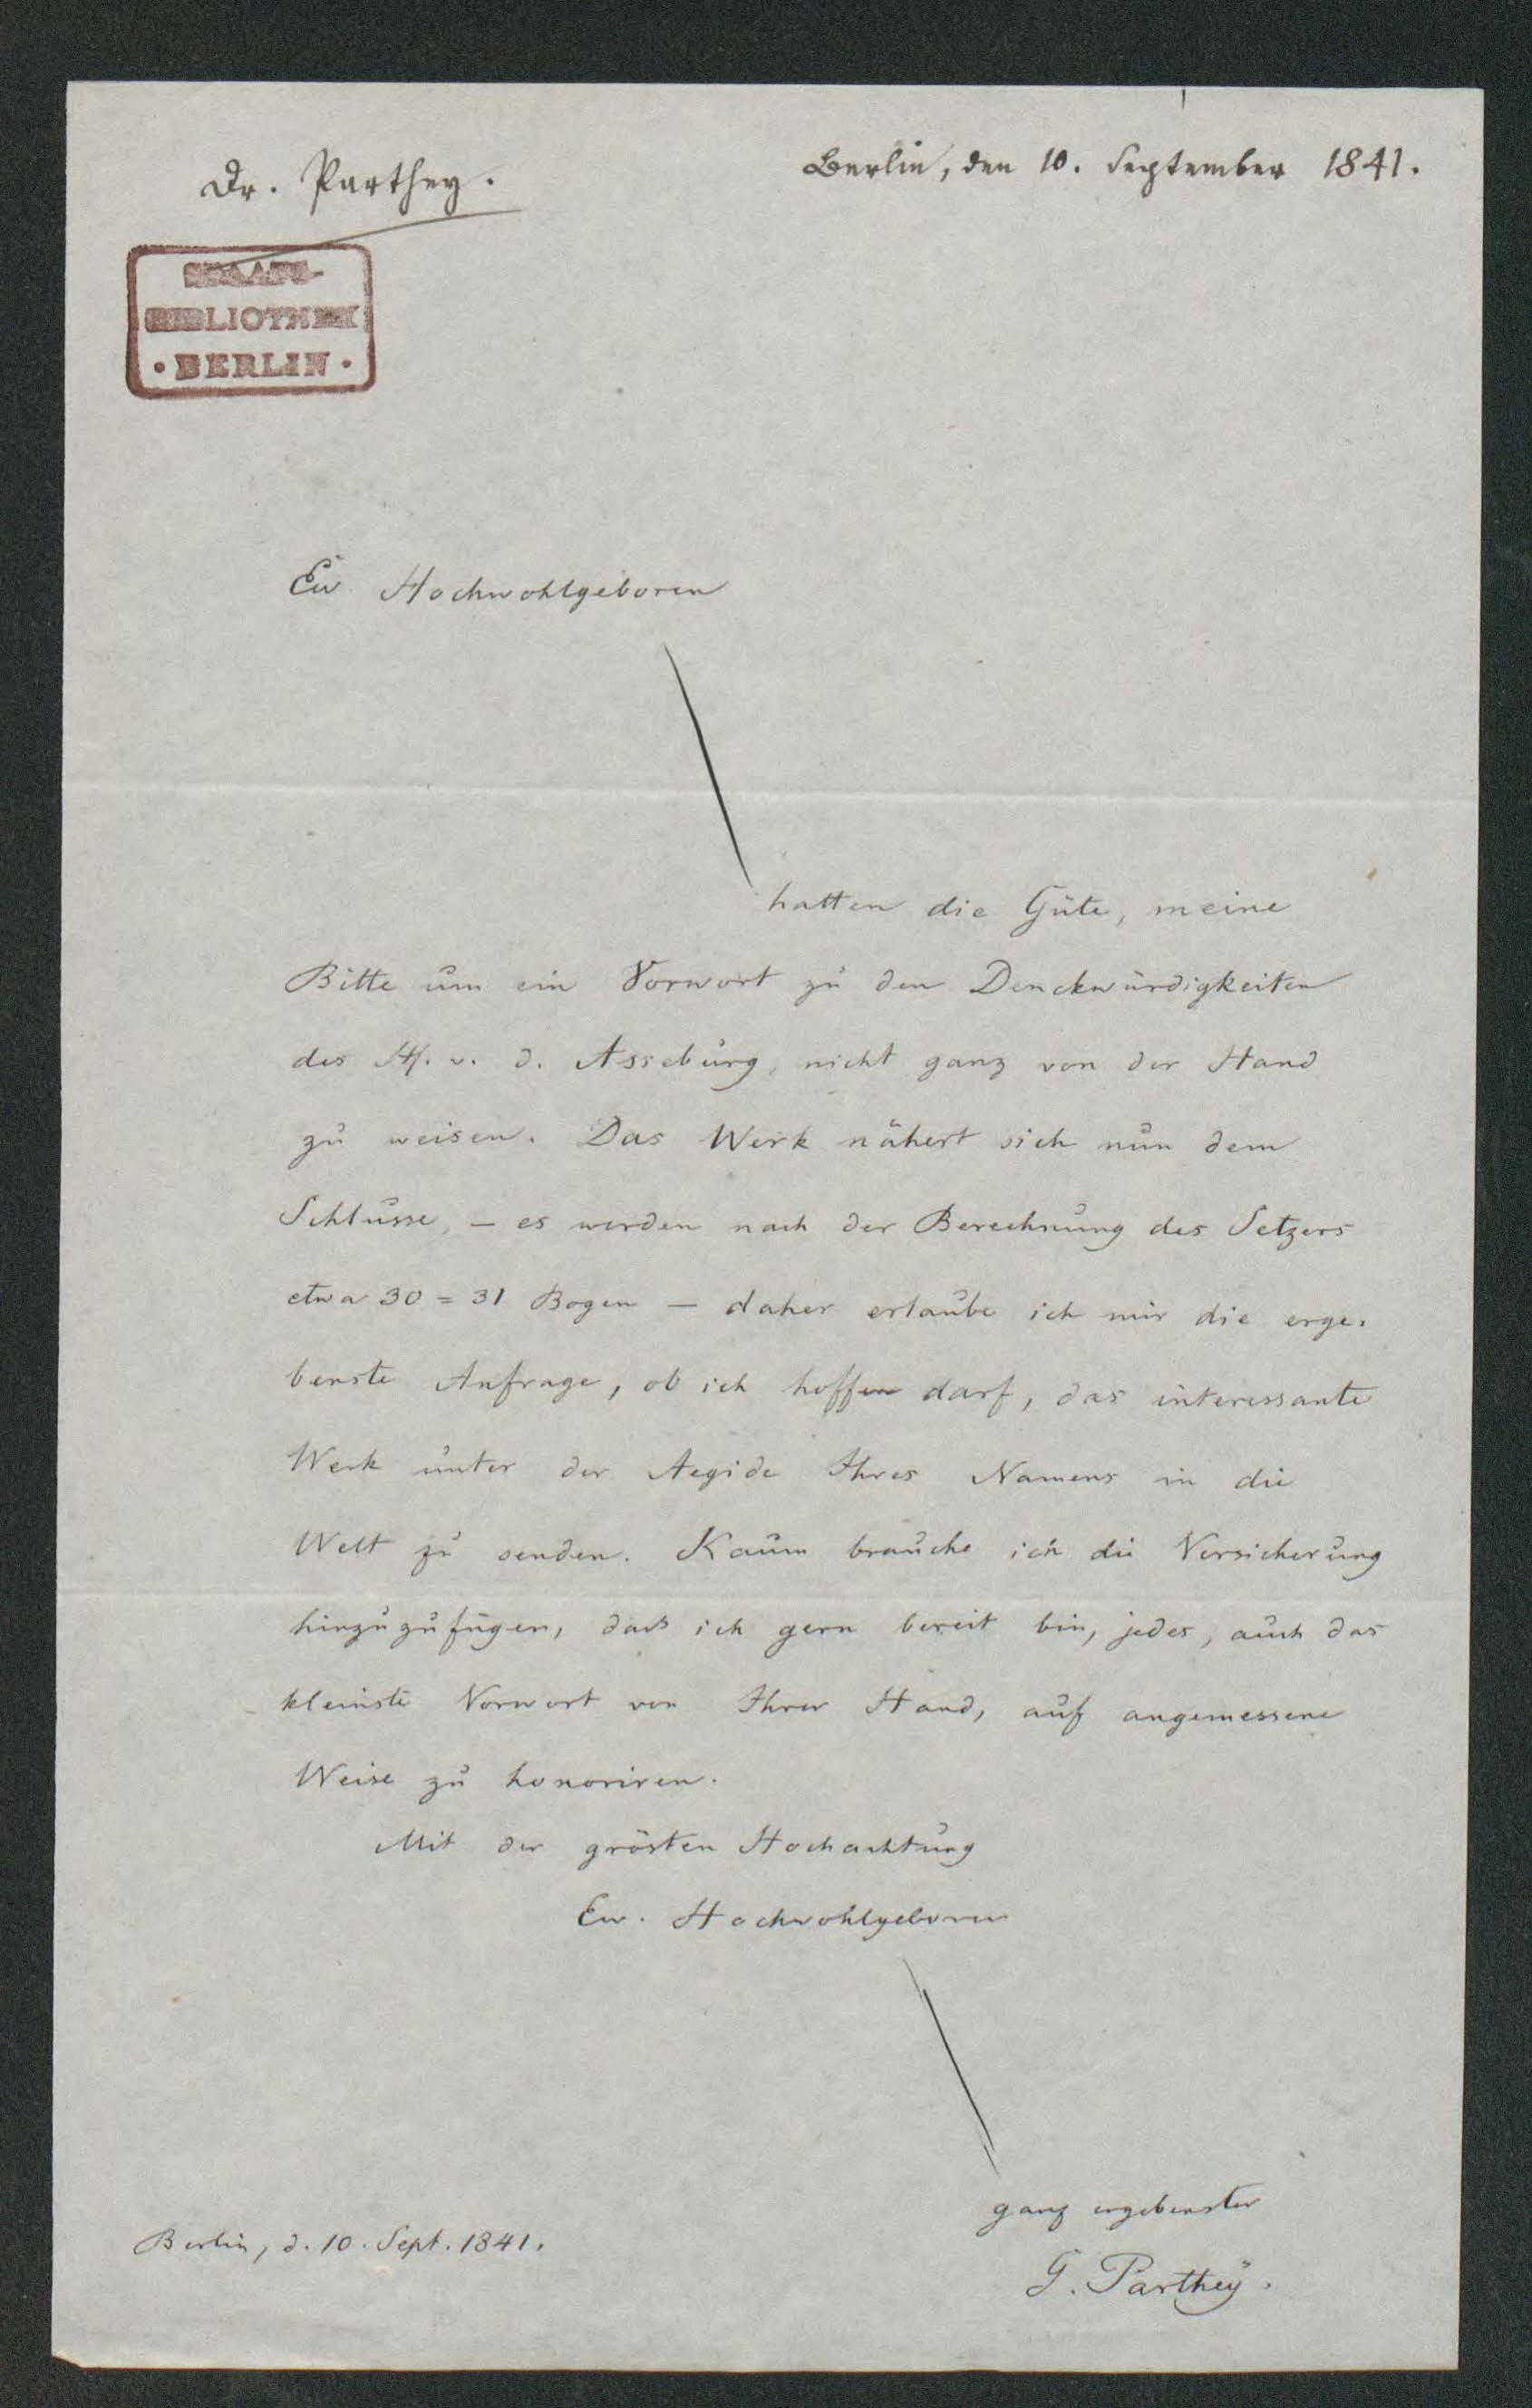 Dr. Parthey.
Berlin, den 10. September 1841.
STAATS-
BIBLIOTHEK
• BERLIN •
Ew. Hochwohlgeboren
hatten die Güte, meine
Bitte um ein Vorwort zu den Denckwürdigkeiten
des H. v. d. Asseburg, nicht ganz von der Hand
zu weisen. Das Werk nähert sich nun dem
Schlusse, – es werden nach der Berechnung des Setzers
etwa 30 = 31 Bogen – daher erlaube ich mir die erge-
benste Anfrage, ob ich hoffen darf, das interessante
Werk unter der Aegide Ihres Namens in die
Welt zu senden. Kaum brauche ich die Versicherung
hinzuzufügen, daß ich gern bereit bin, jedes, auch das
kleinste Vorwort von Ihrer Hand, auf angemessene
Weise zu honoriren.
Mit der grösten Hochachtung
Ew. Hochwohlgeboren
ganz ergebenster
G. Partheÿ.
Berlin, d. 10. Sept. 1841.